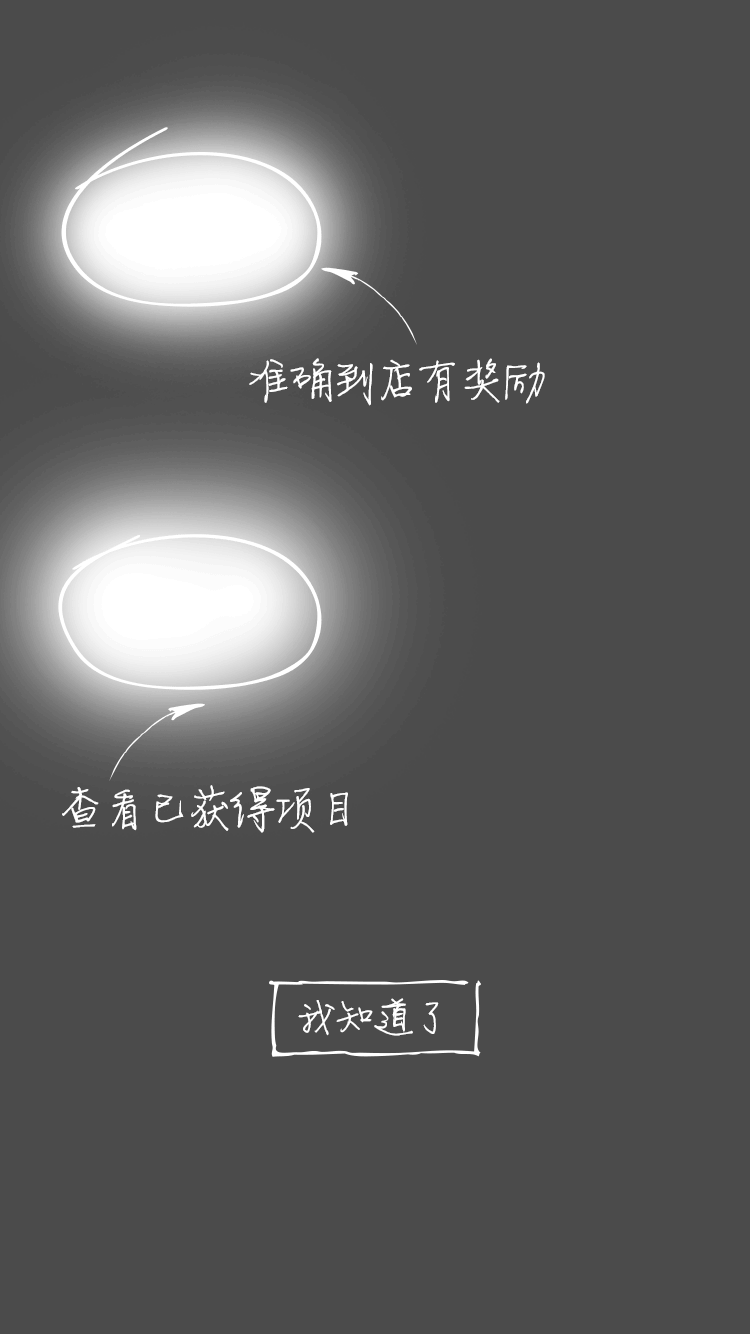 准确到店有奖励
查看已获得项目
我知道了